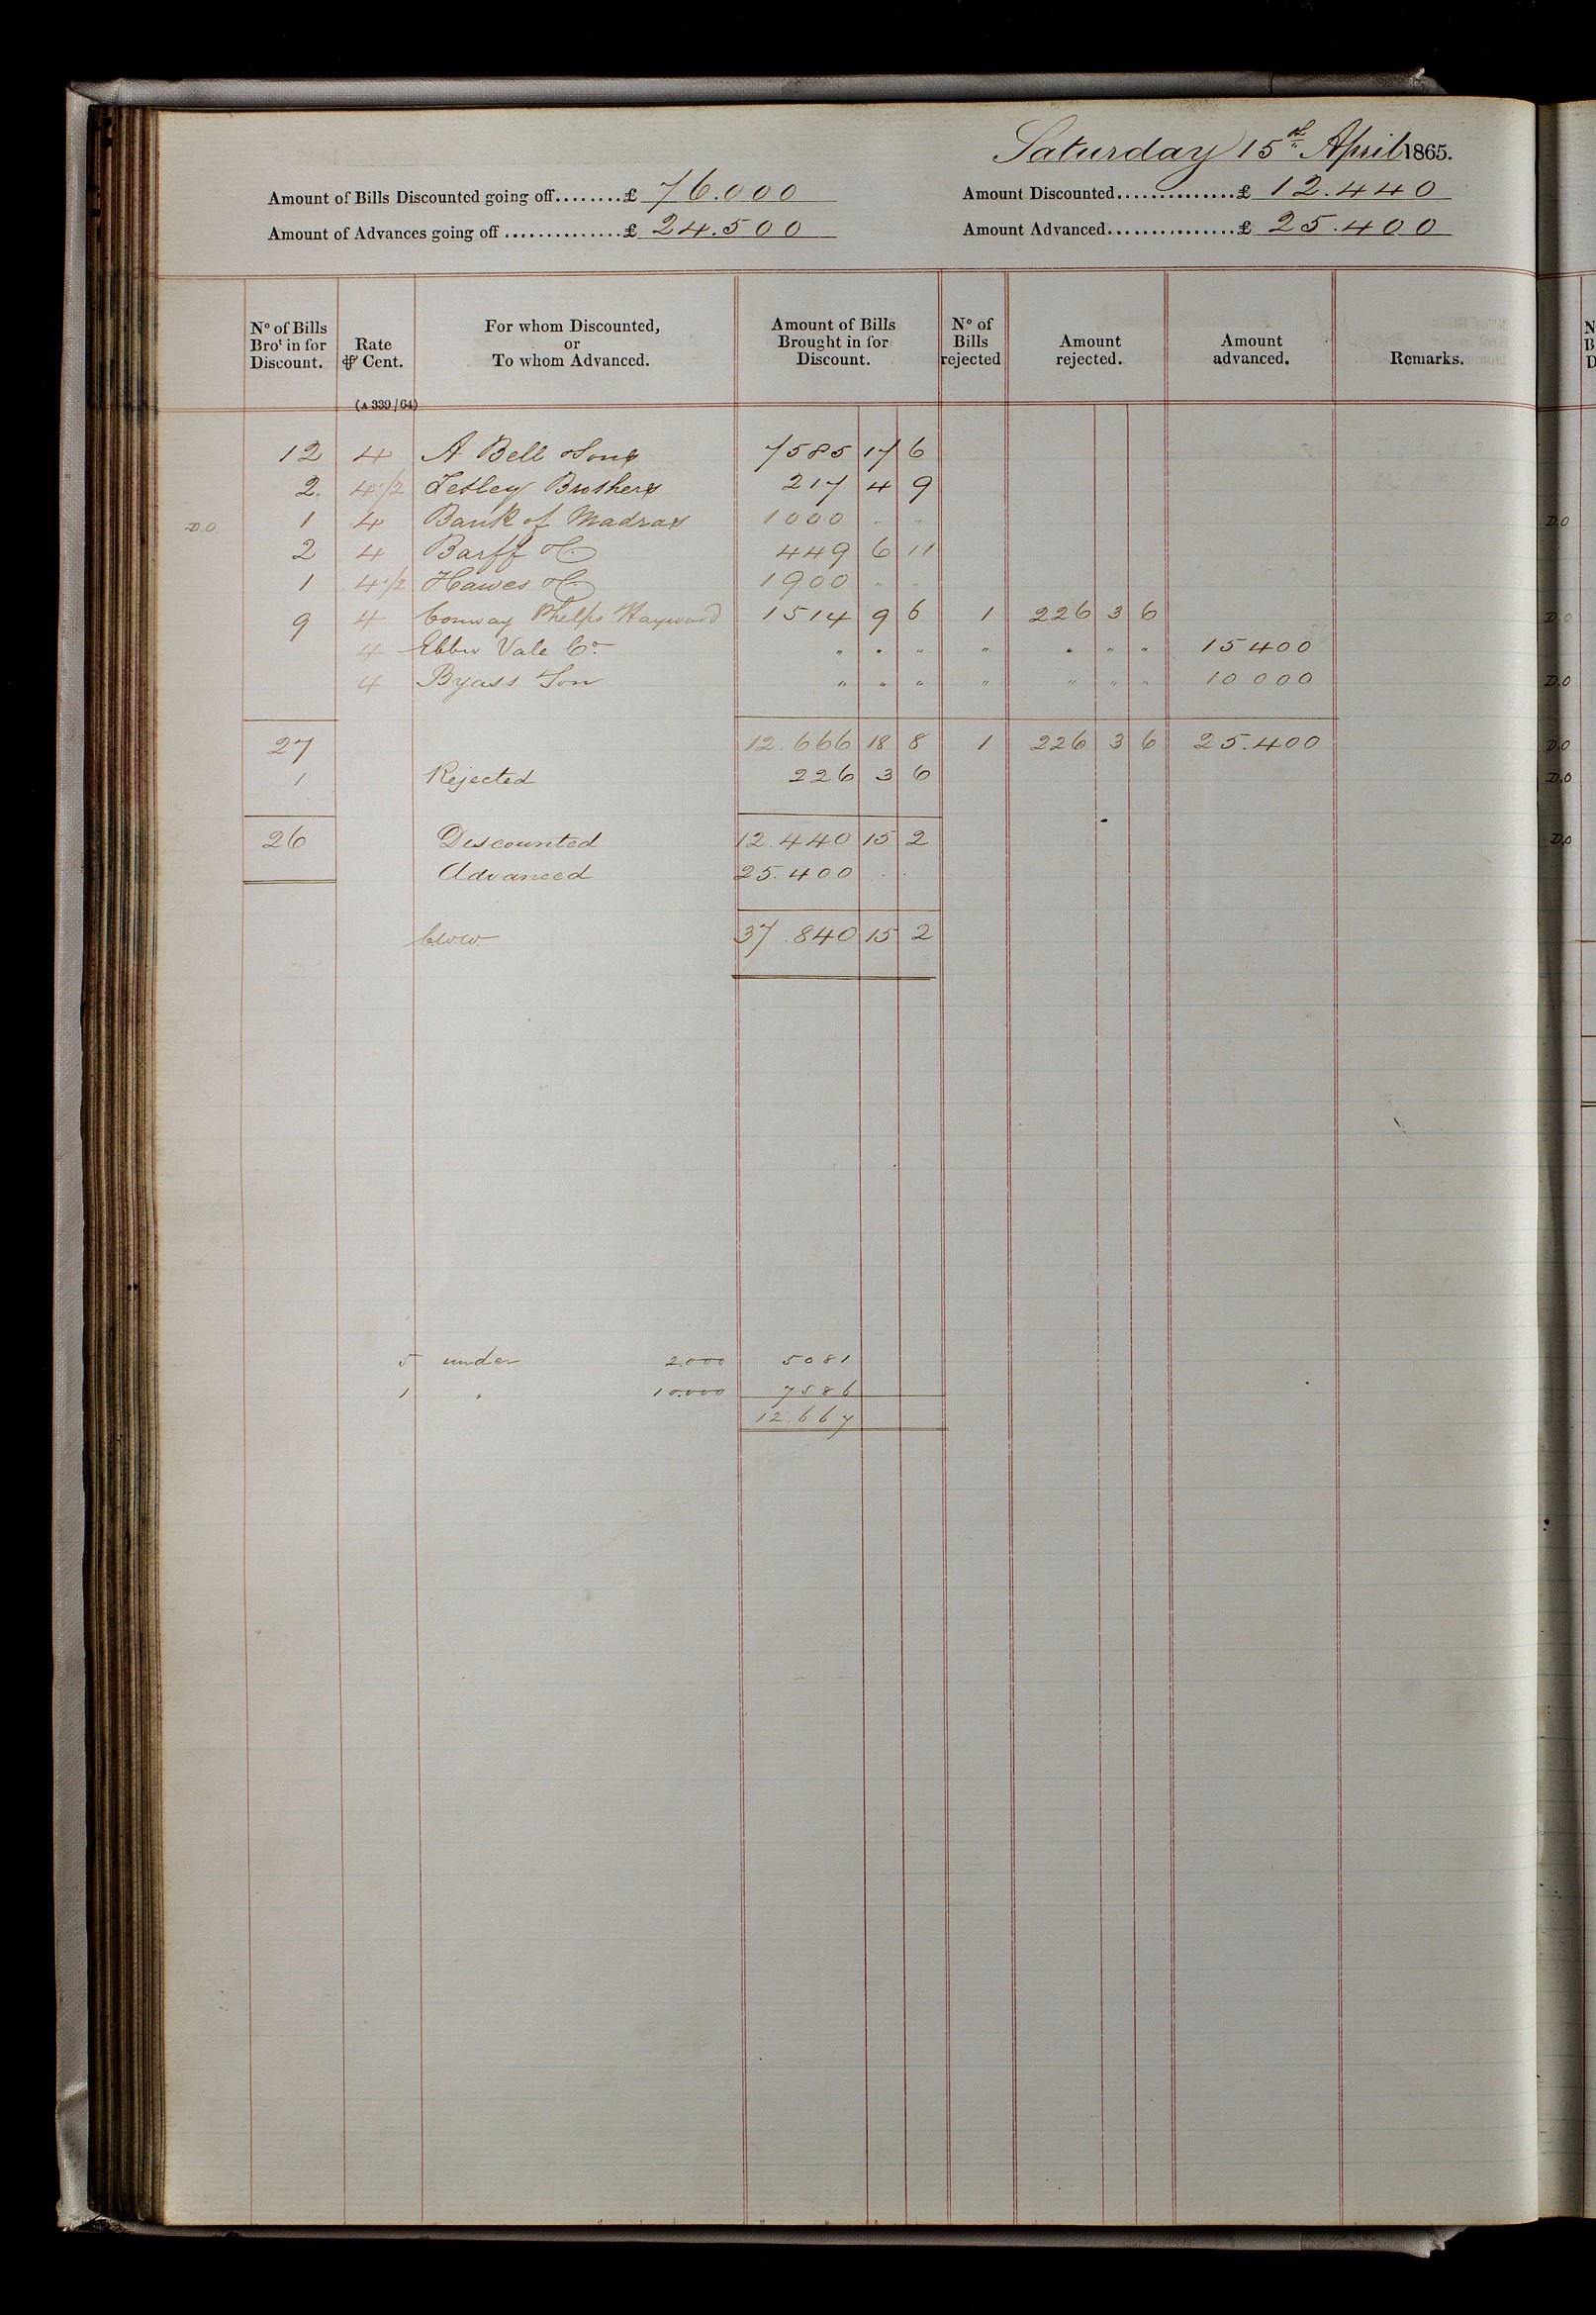 Saturday 15th April 1865.
Amount of Bills Discounted going off........£ 76.000 Amount Discounted...............£ 12.440
Amount of Advances going off ..............£ 24.500 Amount Advanced................£ 25.400
No of Bills Brot in for Discount. Rate ⅌ Cent. For whom Discounted, or To whom Advanced. Amount of Bills Brought in for Discount. No of Bills rejected Amount rejected. Amount advanced. Remarks.
(A 339/64)
12 4 A Bell & Sons 7585 17 6
2. 4 1/2 Lesley Brothers 217 4 9
D.O. 1 4 Bank of Madras 1000 " "
2 4 Barff & Co 449 6 11
1 4 1/2 Hawes & Co 1900 " "
9 4 Conway Phelps Hayward 1514 9 6 1 226 3 6
4 Ebbw Vale Co. " " " " " " " 15400
4 Byass & Son " " " " " " " 10000
27 12.666 18 8 1 226 3 6 25.400
1 Rejected 226 3 6
26 Discounted 12.440 15 2
Advanced 25.400 . .
37.840 15 2
5 under 2.000 5081
1 " 10.000 7586
12.667
D.O
D.O
D.O
D.O
D.O
D.O